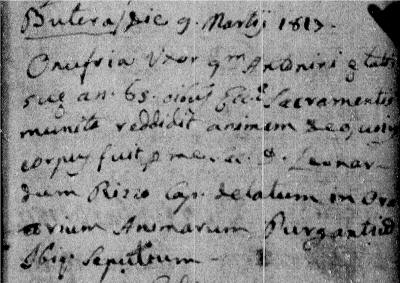 Butera die 9. Martij 1817.
Onufria Uxor qm Antonini etatis
sue an. 65. oibus Eccl. Sacramentis
munita reddidit animam Deo, cuius
corpus fuit p me Sac. D. Leonar-
dum Rizzo Cap. delatum in Ora
torium Animarum Purgantium
Ibiq. Sepultum -